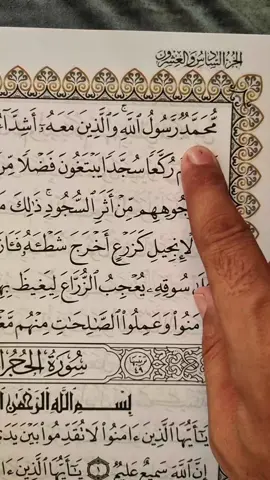 الجزء السادس والعشرون
مُّحَمَّدٌ رَّسُولُ ٱللَّهِ ۚ وَٱلَّذِينَ مَعَهُۥٓ أَشِدَّآءُ
رُكَّعًا سُجَّدًا يَبْتَغُونَ فَضْلًا مِّنَ
مِّنْ أَثَرِ ٱلسُّجُودِ ۚ ذَٰلِكَ
كَزَرْعٍ أَخْرَجَ شَطْـَٔهُۥ
سُوقِهِۦ يُعْجِبُ ٱلزُّرَّاعَ لِيَغِيظَ
وَعَمِلُوا۟ ٱلصَّـٰلِحَـٰتِ مِنْهُم
سُورَةُ ٱلْحُجُرَاتِ
بِسْمِ ٱللَّهِ ٱلرَّحْمَـٰنِ
يَـٰٓأَيُّهَا ٱلَّذِينَ ءَامَنُوا۟ لَا تُقَدِّمُوا۟ بَيْنَ يَدَىِ
إِنَّ ٱللَّهَ سَمِيعٌ عَلِيمٌ ١ يَـٰٓأَيُّهَا ٱلَّذِينَ